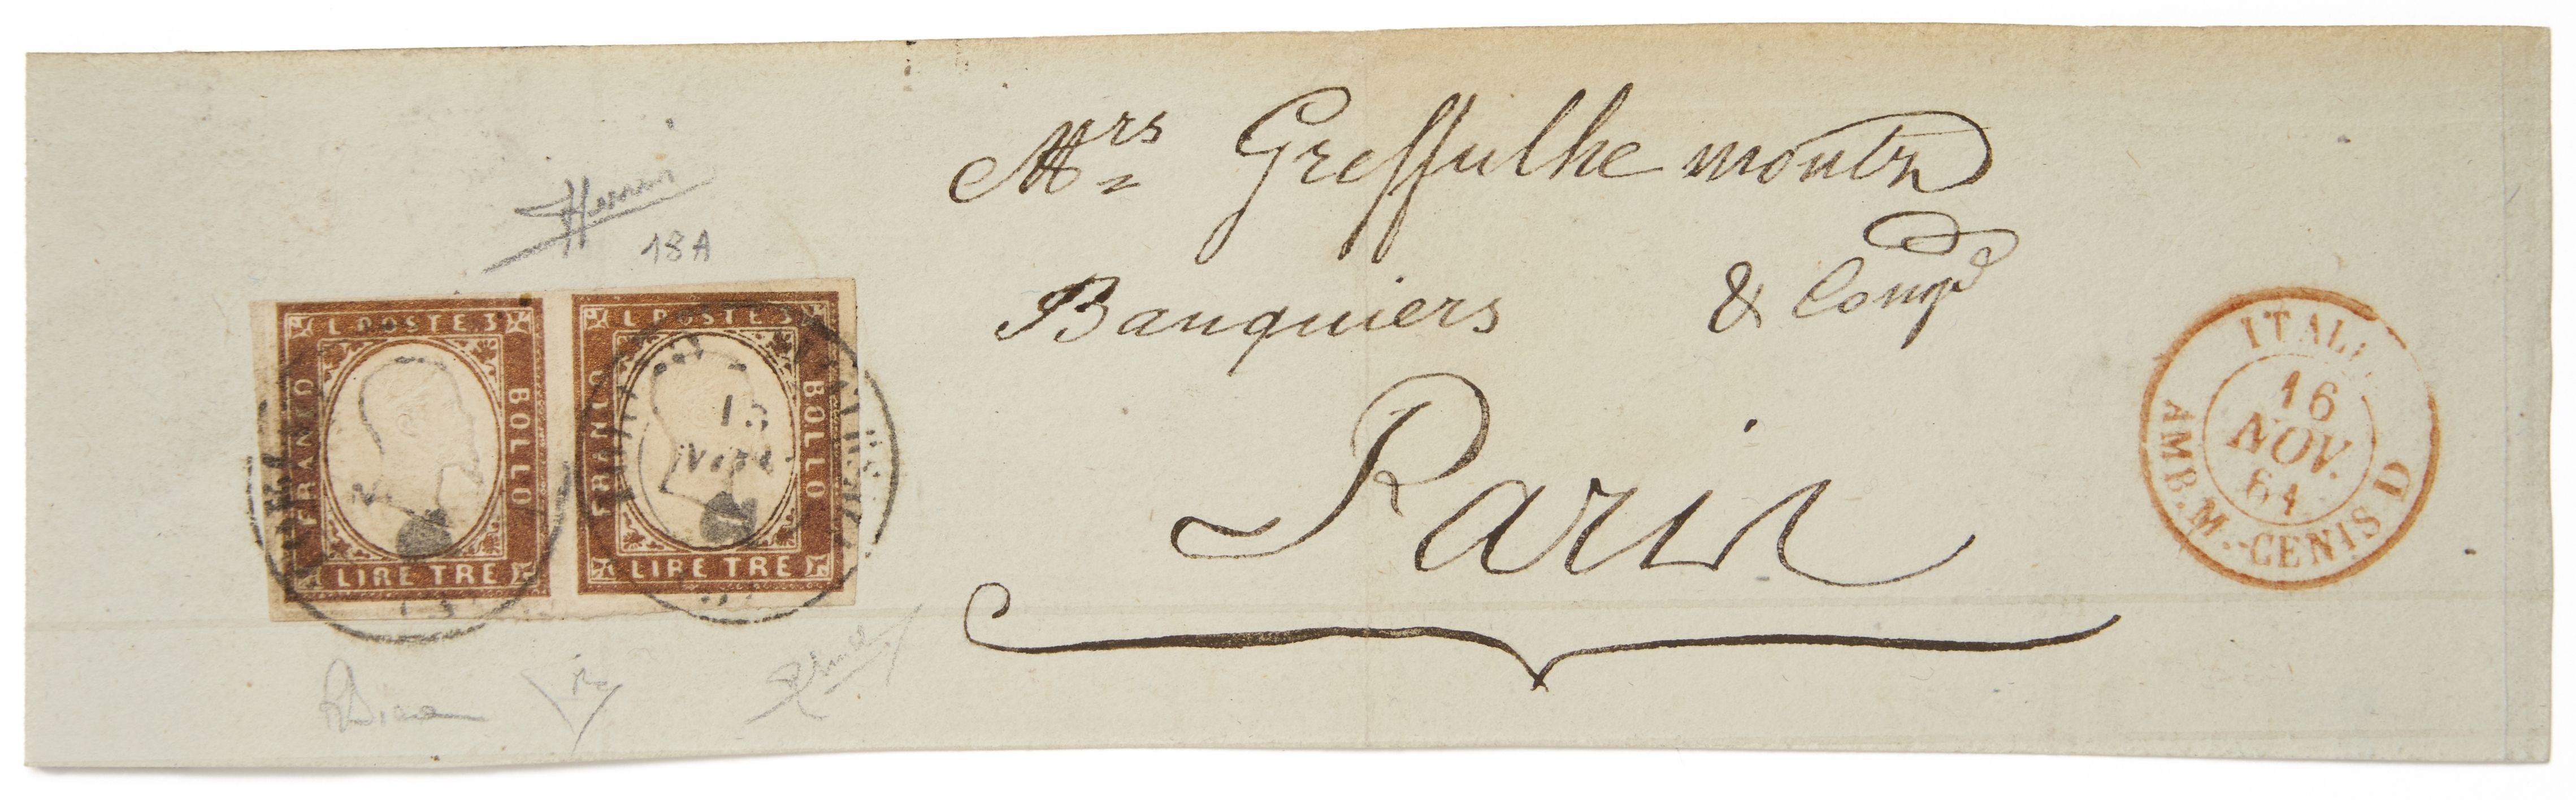 Mrs Greffulhe montz
Banquiers & Comp
Paris
18A
C. POSTE 3
FRANCO
BOLLO
LIRE TRE
C. POSTE 3
FRANCO
BOLLO
LIRE TRE
13
ITALI
16
NOV.
61
AMB. M.-CENIS D